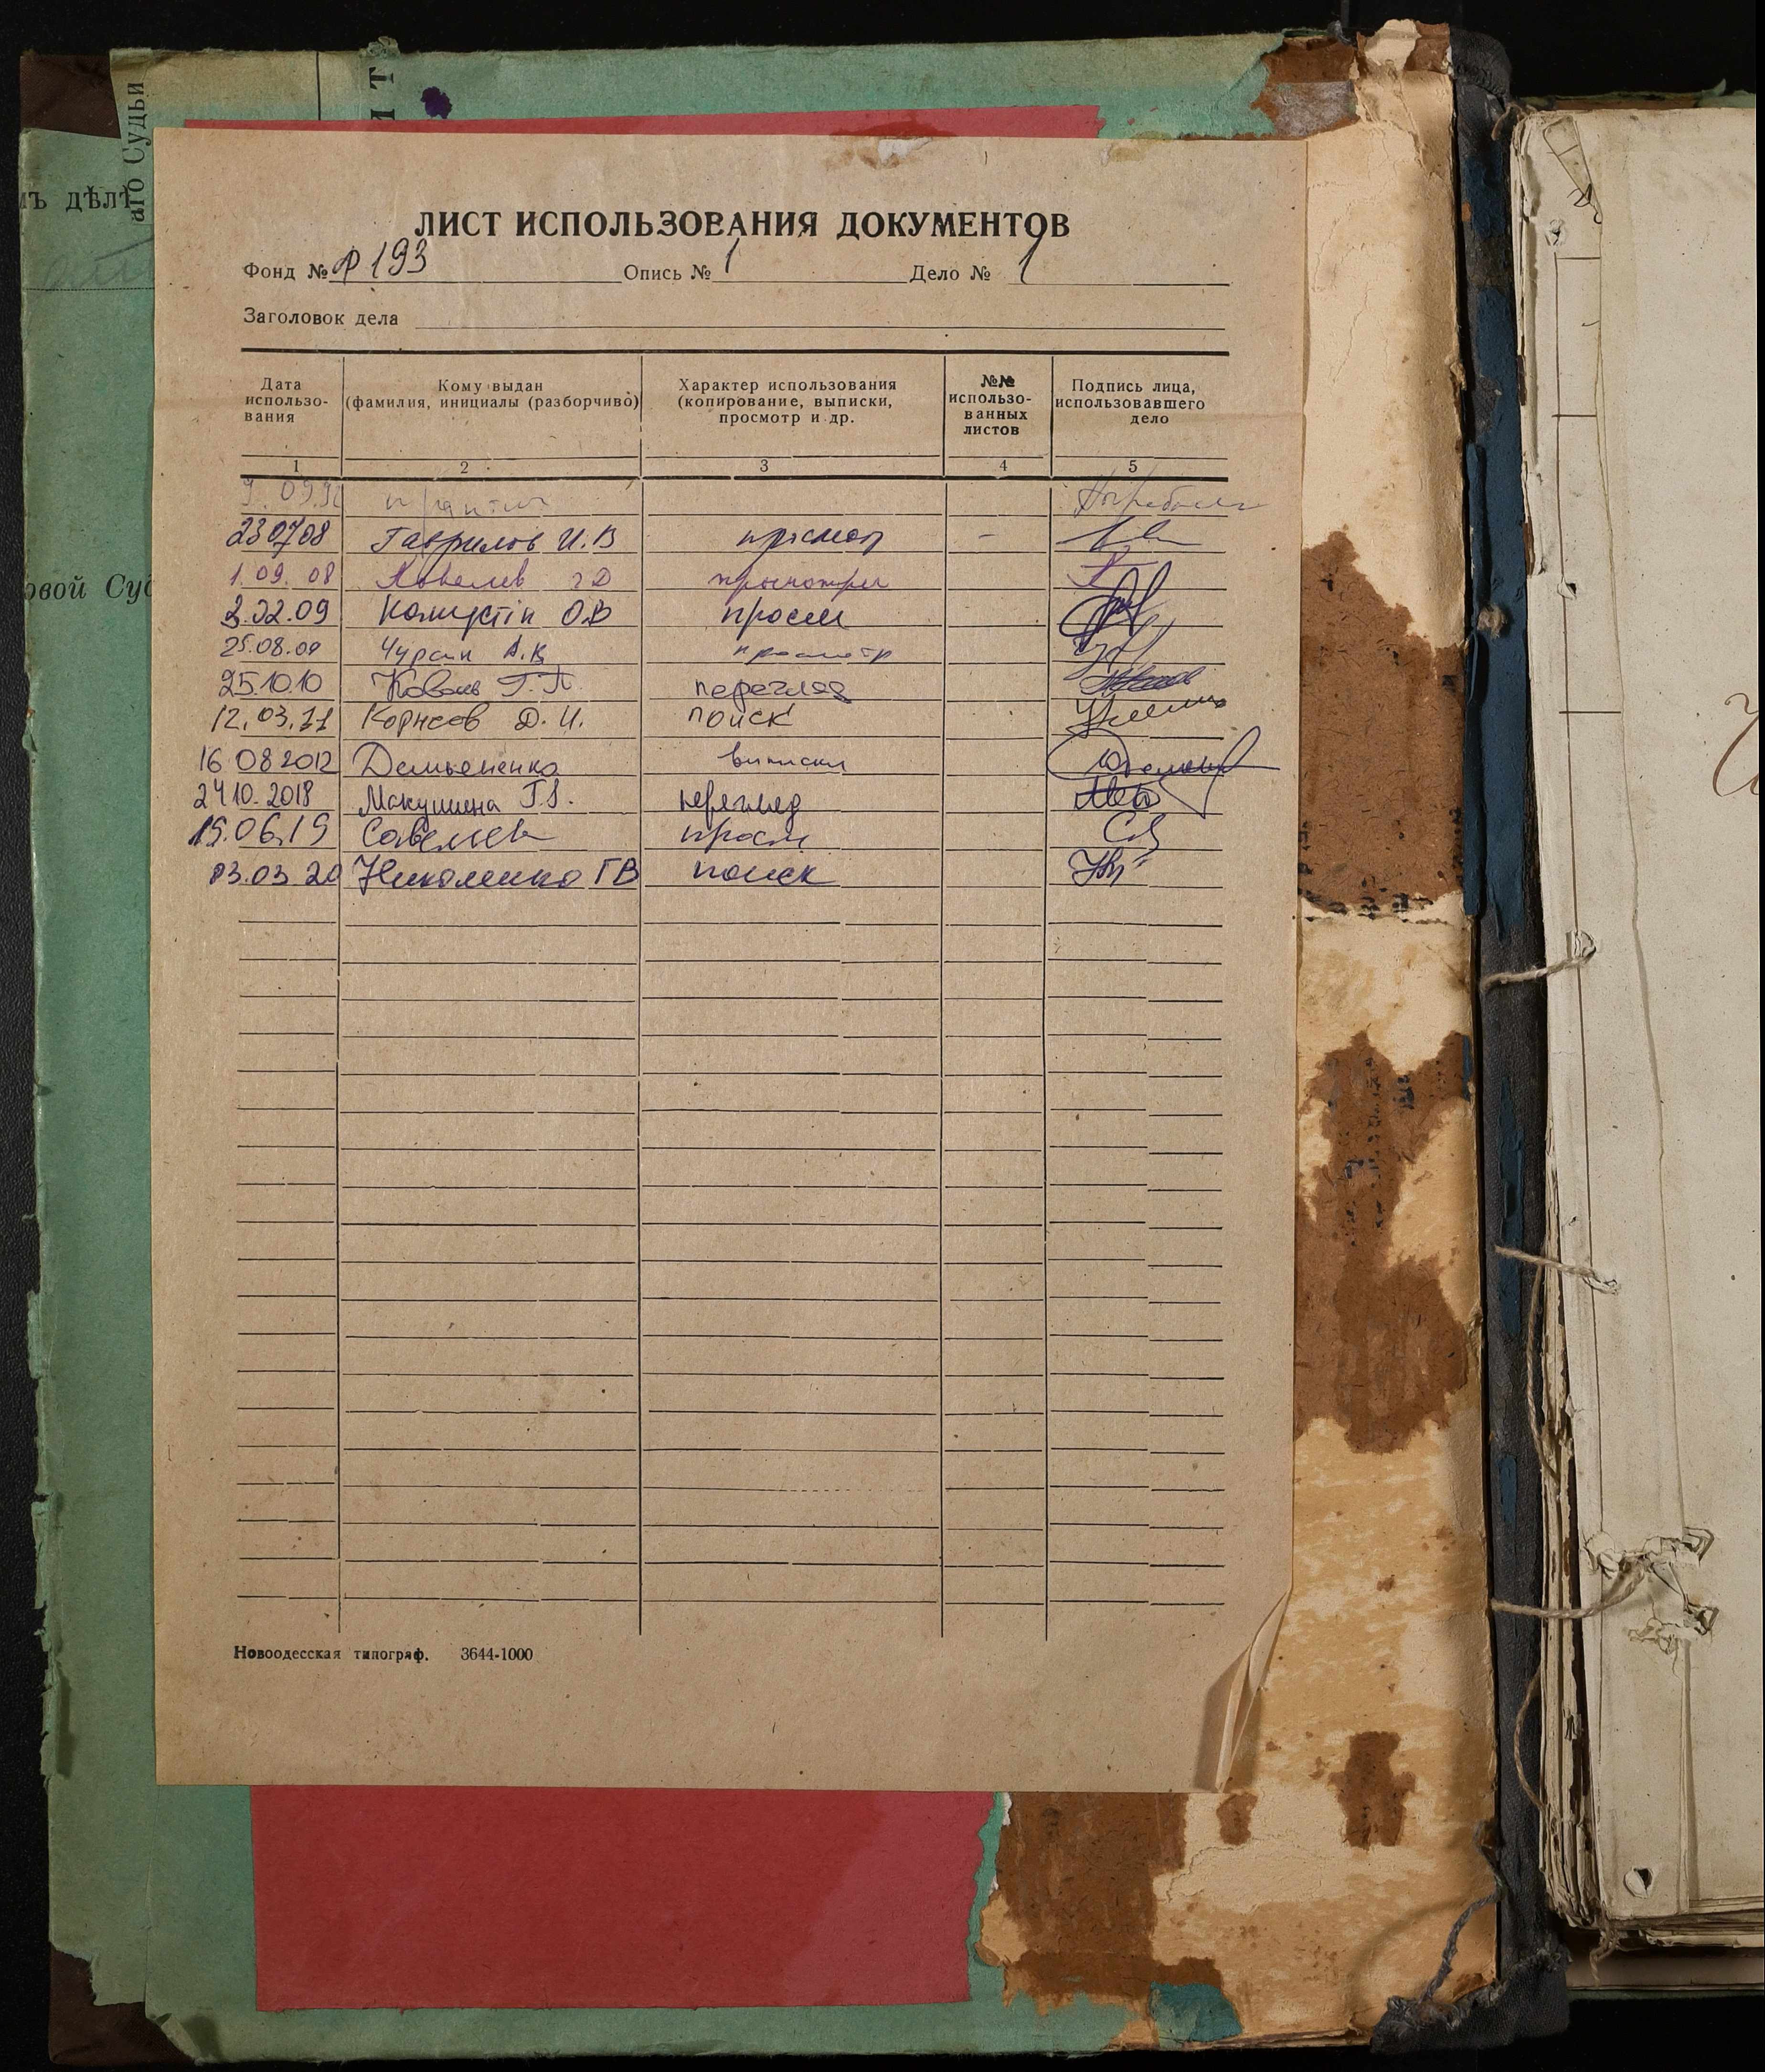 аго Судьи
И Т
мъ дѣлѣ
овой Суд
ЛИСТ ИСПОЛЬЗОВАНИЯ ДОКУМЕНТОВ
Фонд № Р 193 Опись № 1 Дело № 1
Заголовок дела
Дата использо-вания
Кому выдан (фамилия, инициалы (разборчиво)
Характер использования (копирование, выписки, просмотр и др.
№№ использо-ванных листов
Подпись лица, использовавшего дело
1 2 3 4 5
23 07 08 Гаврилов И.В просмотр -
1.09.08
2.02.09 О.В просм
25.08.09 А.В просмотр
25.10.10 Коваль Г.П. перегляд
12.03.11 Корнеев Д. И. поиск
16 08 2012 Демьененко выписки
24 10. 2018 Макушина перегляд
15.06.19 Савельев просм
03.03 20 Николенко ГВ поиск
Новоодесская типограф. 3644-1000